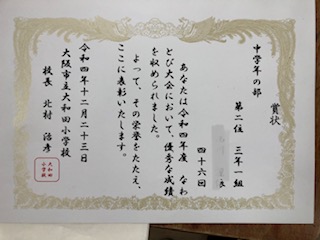 賞状
中学年の部
第二位 三年一組
良
四十六回
あなたは令和四年度 なわ
とび大会において、優秀な成績
を収められました。
よって、その栄誉をたたえ、
ここに表彰いたします。
令和四年十二月二十三日
大阪市立大和田小学校
校長 北村 浩彦
大和田
小学校